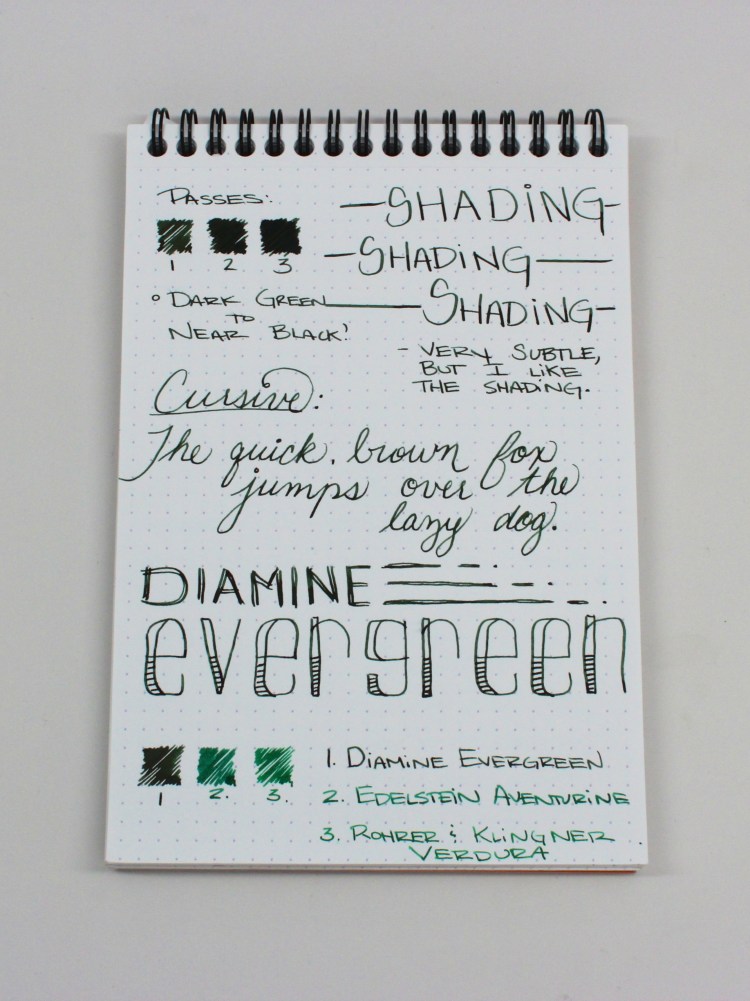 PASSES:
1 2 3
° DARK GREEN
TO
NEAR BLACK!
—SHADING—
—SHADING—
SHADING—
- VERY SUBTLE,
BUT I LIKE
THE SHADING.
Cursive:
The quick, brown fox
jumps over the
lazy dog.
DIAMINE
evergreen
1 2. 3.
1. DIAMINE EVERGREEN
2. EDELSTEIN AVENTURINE
3. ROHRER & KLINGNER
VERDURA